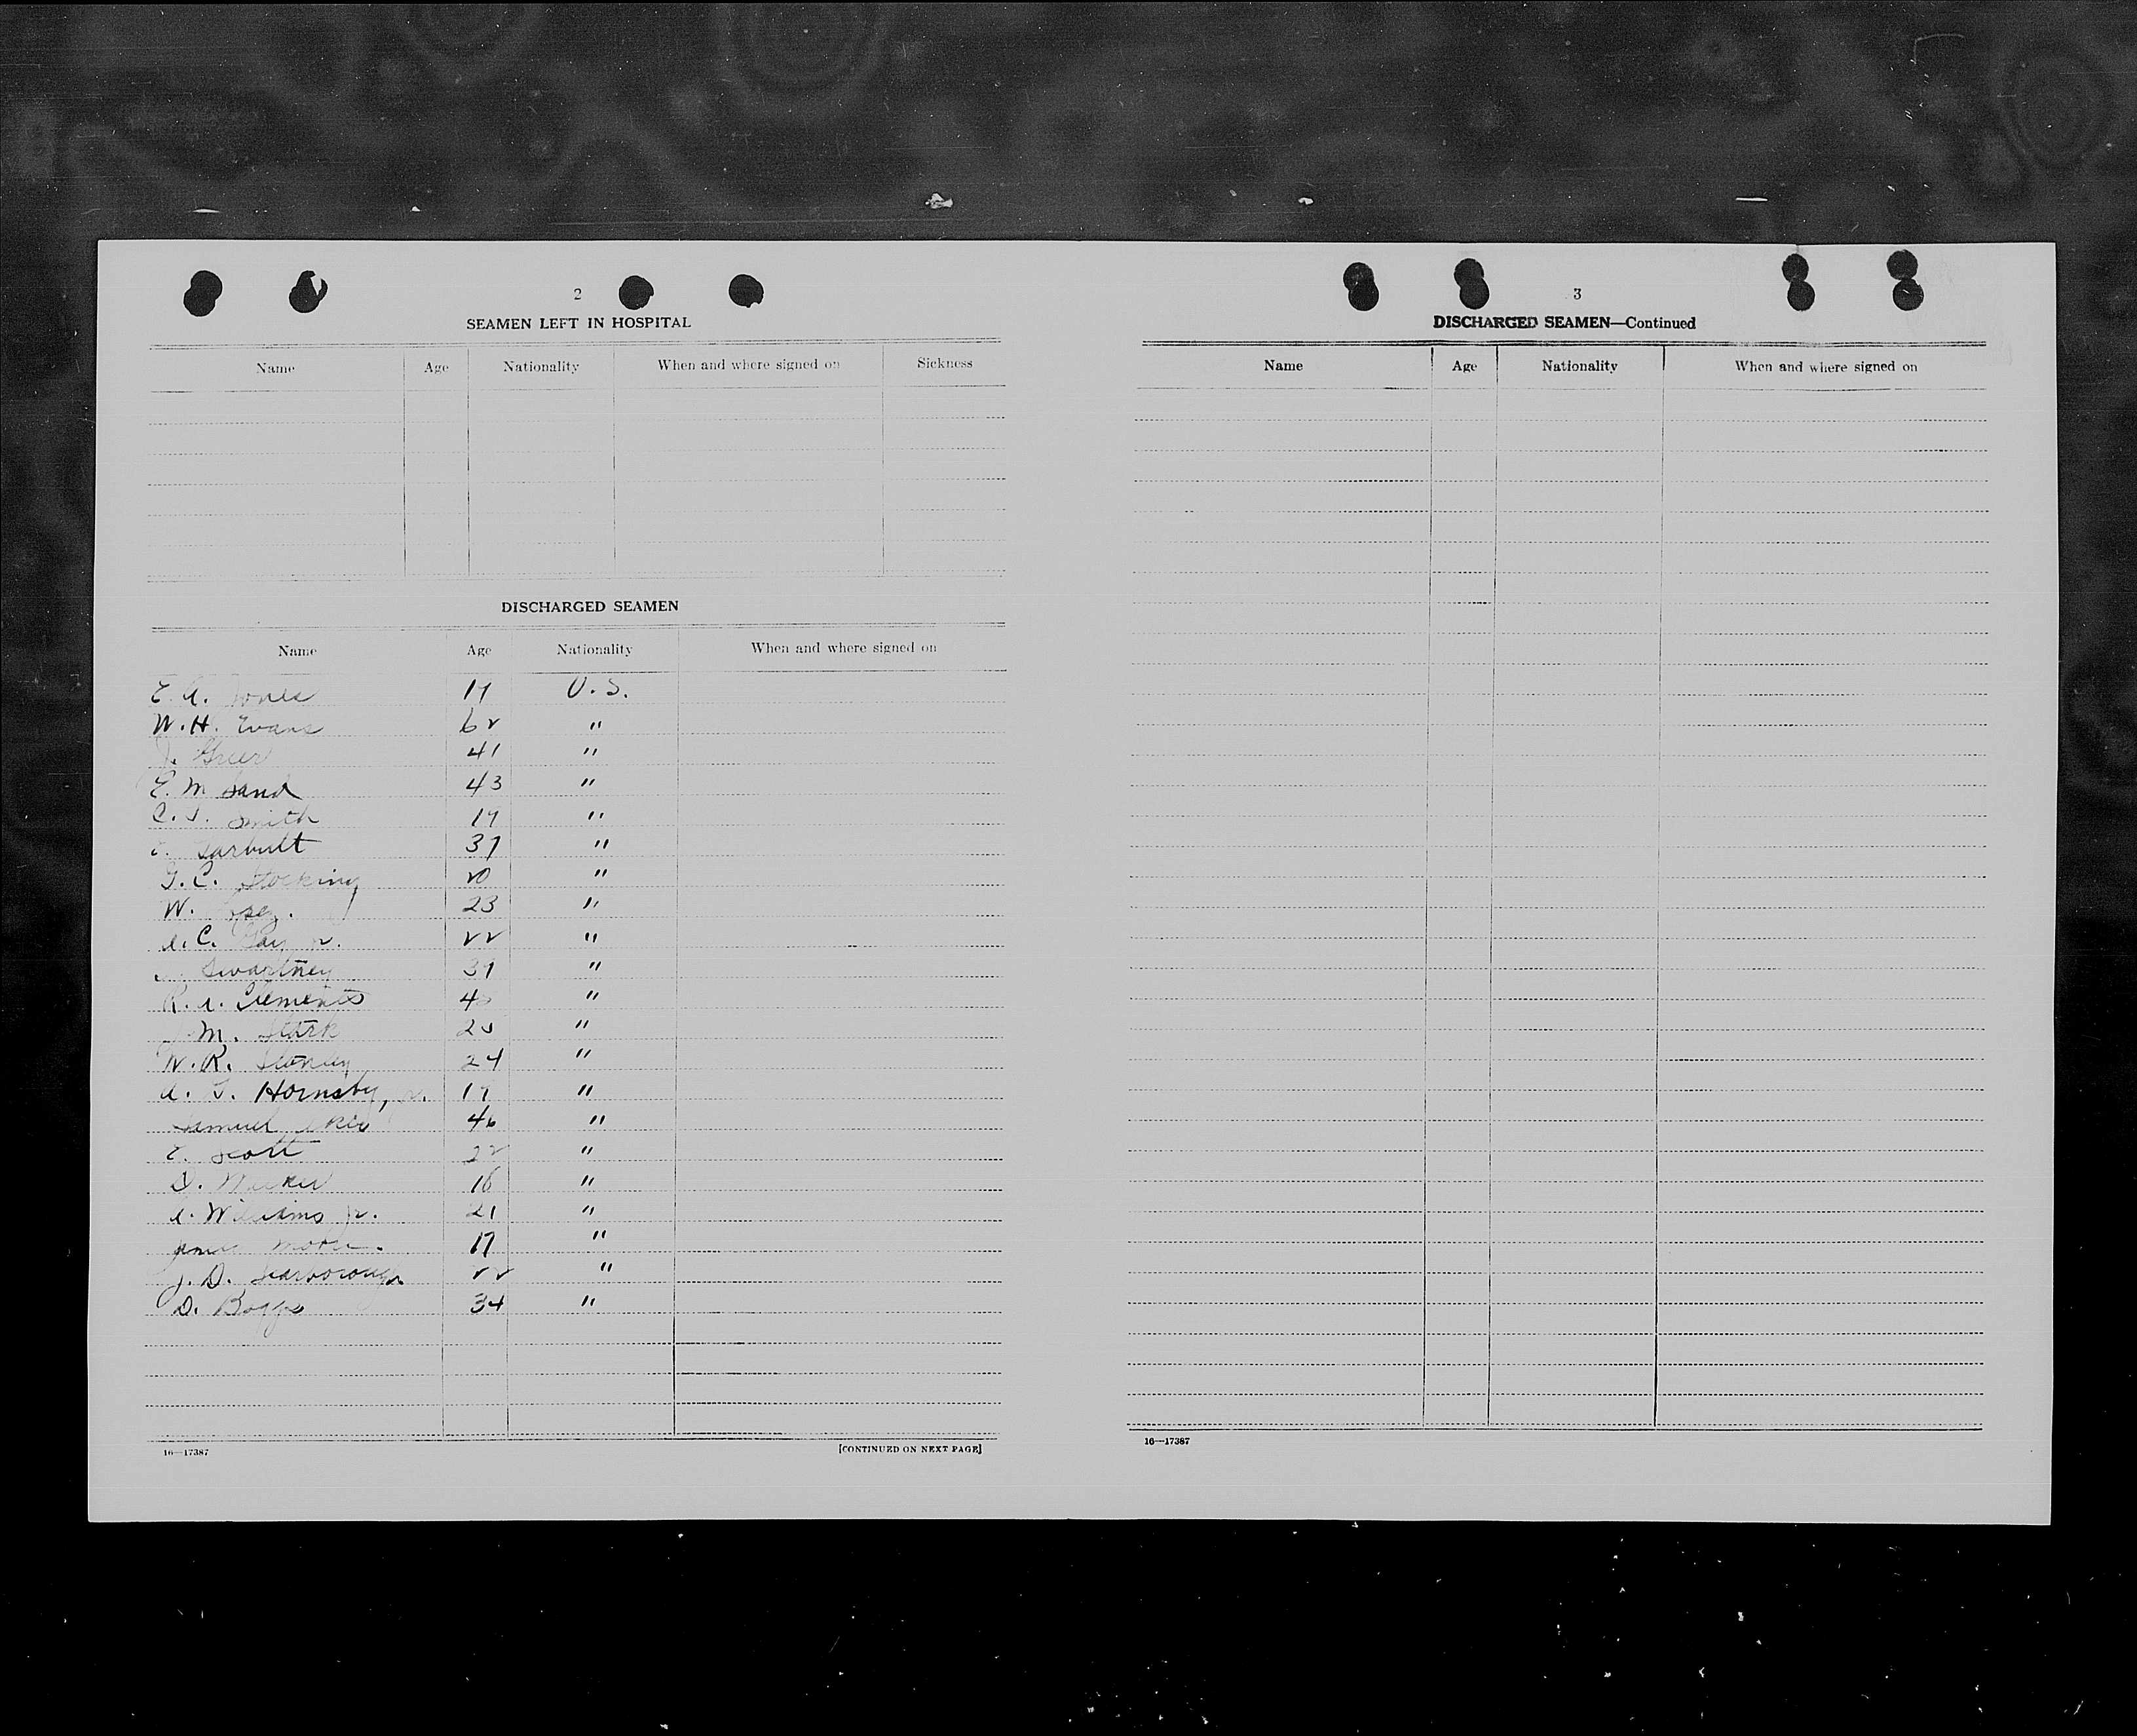 2
SEAMEN LEFT IN HOSPITAL
Name Age Nationality When and where signed on Sickness
DISCHARGED SEAMEN
Name Age Nationality When and where signed on
E. A. Jones U.S.
W. H. Evans 62 "
J. Greer 41 "
E. M. Sand 43 "
C. J. Smith "
Tarbutt "
G. C. Stocking 20 "
W. 23 "
C. 22 "
Swartney "
R. A. Clements "
M. Stark 25 "
W. R. Stanley 24 "
A. G. Hornsby, "
Samuel 46 "
E. Scott 22 "
D. "
A. Williams Jr. 21 "
17 "
J. D. Scarborough 22 "
D. Boggs 34 "
16—17387 [CONTINUED ON NEXT PAGE]
3
DISCHARGED SEAMEN—Continued
Name Age Nationality When and where signed on
16—17387